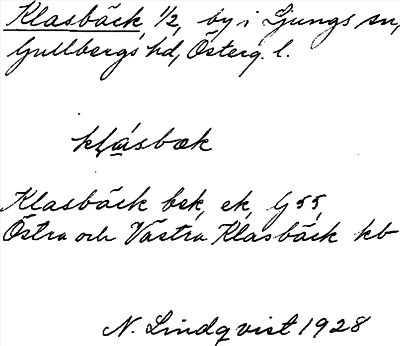 Klasbäck, 1/2, by i Ljungs sn,
Gullbergs hd, Österg. l.
klásbæk
Klasbäck bsk, ek, G 55,
Östra och Västra Klasbäck kb
N. Lindqvist 1928